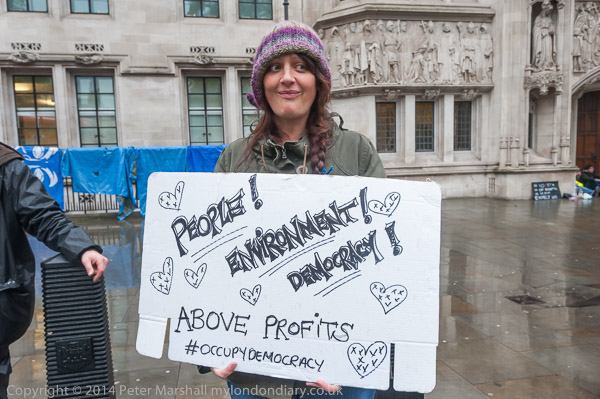 PEOPLE!
ENVIRONMENT!
DEMOCRACY!
ABOVE PROFITS
#OCCUPYDEMOCRACY
Copyright © 2014 Peter Marshall mylondondiary.co.uk